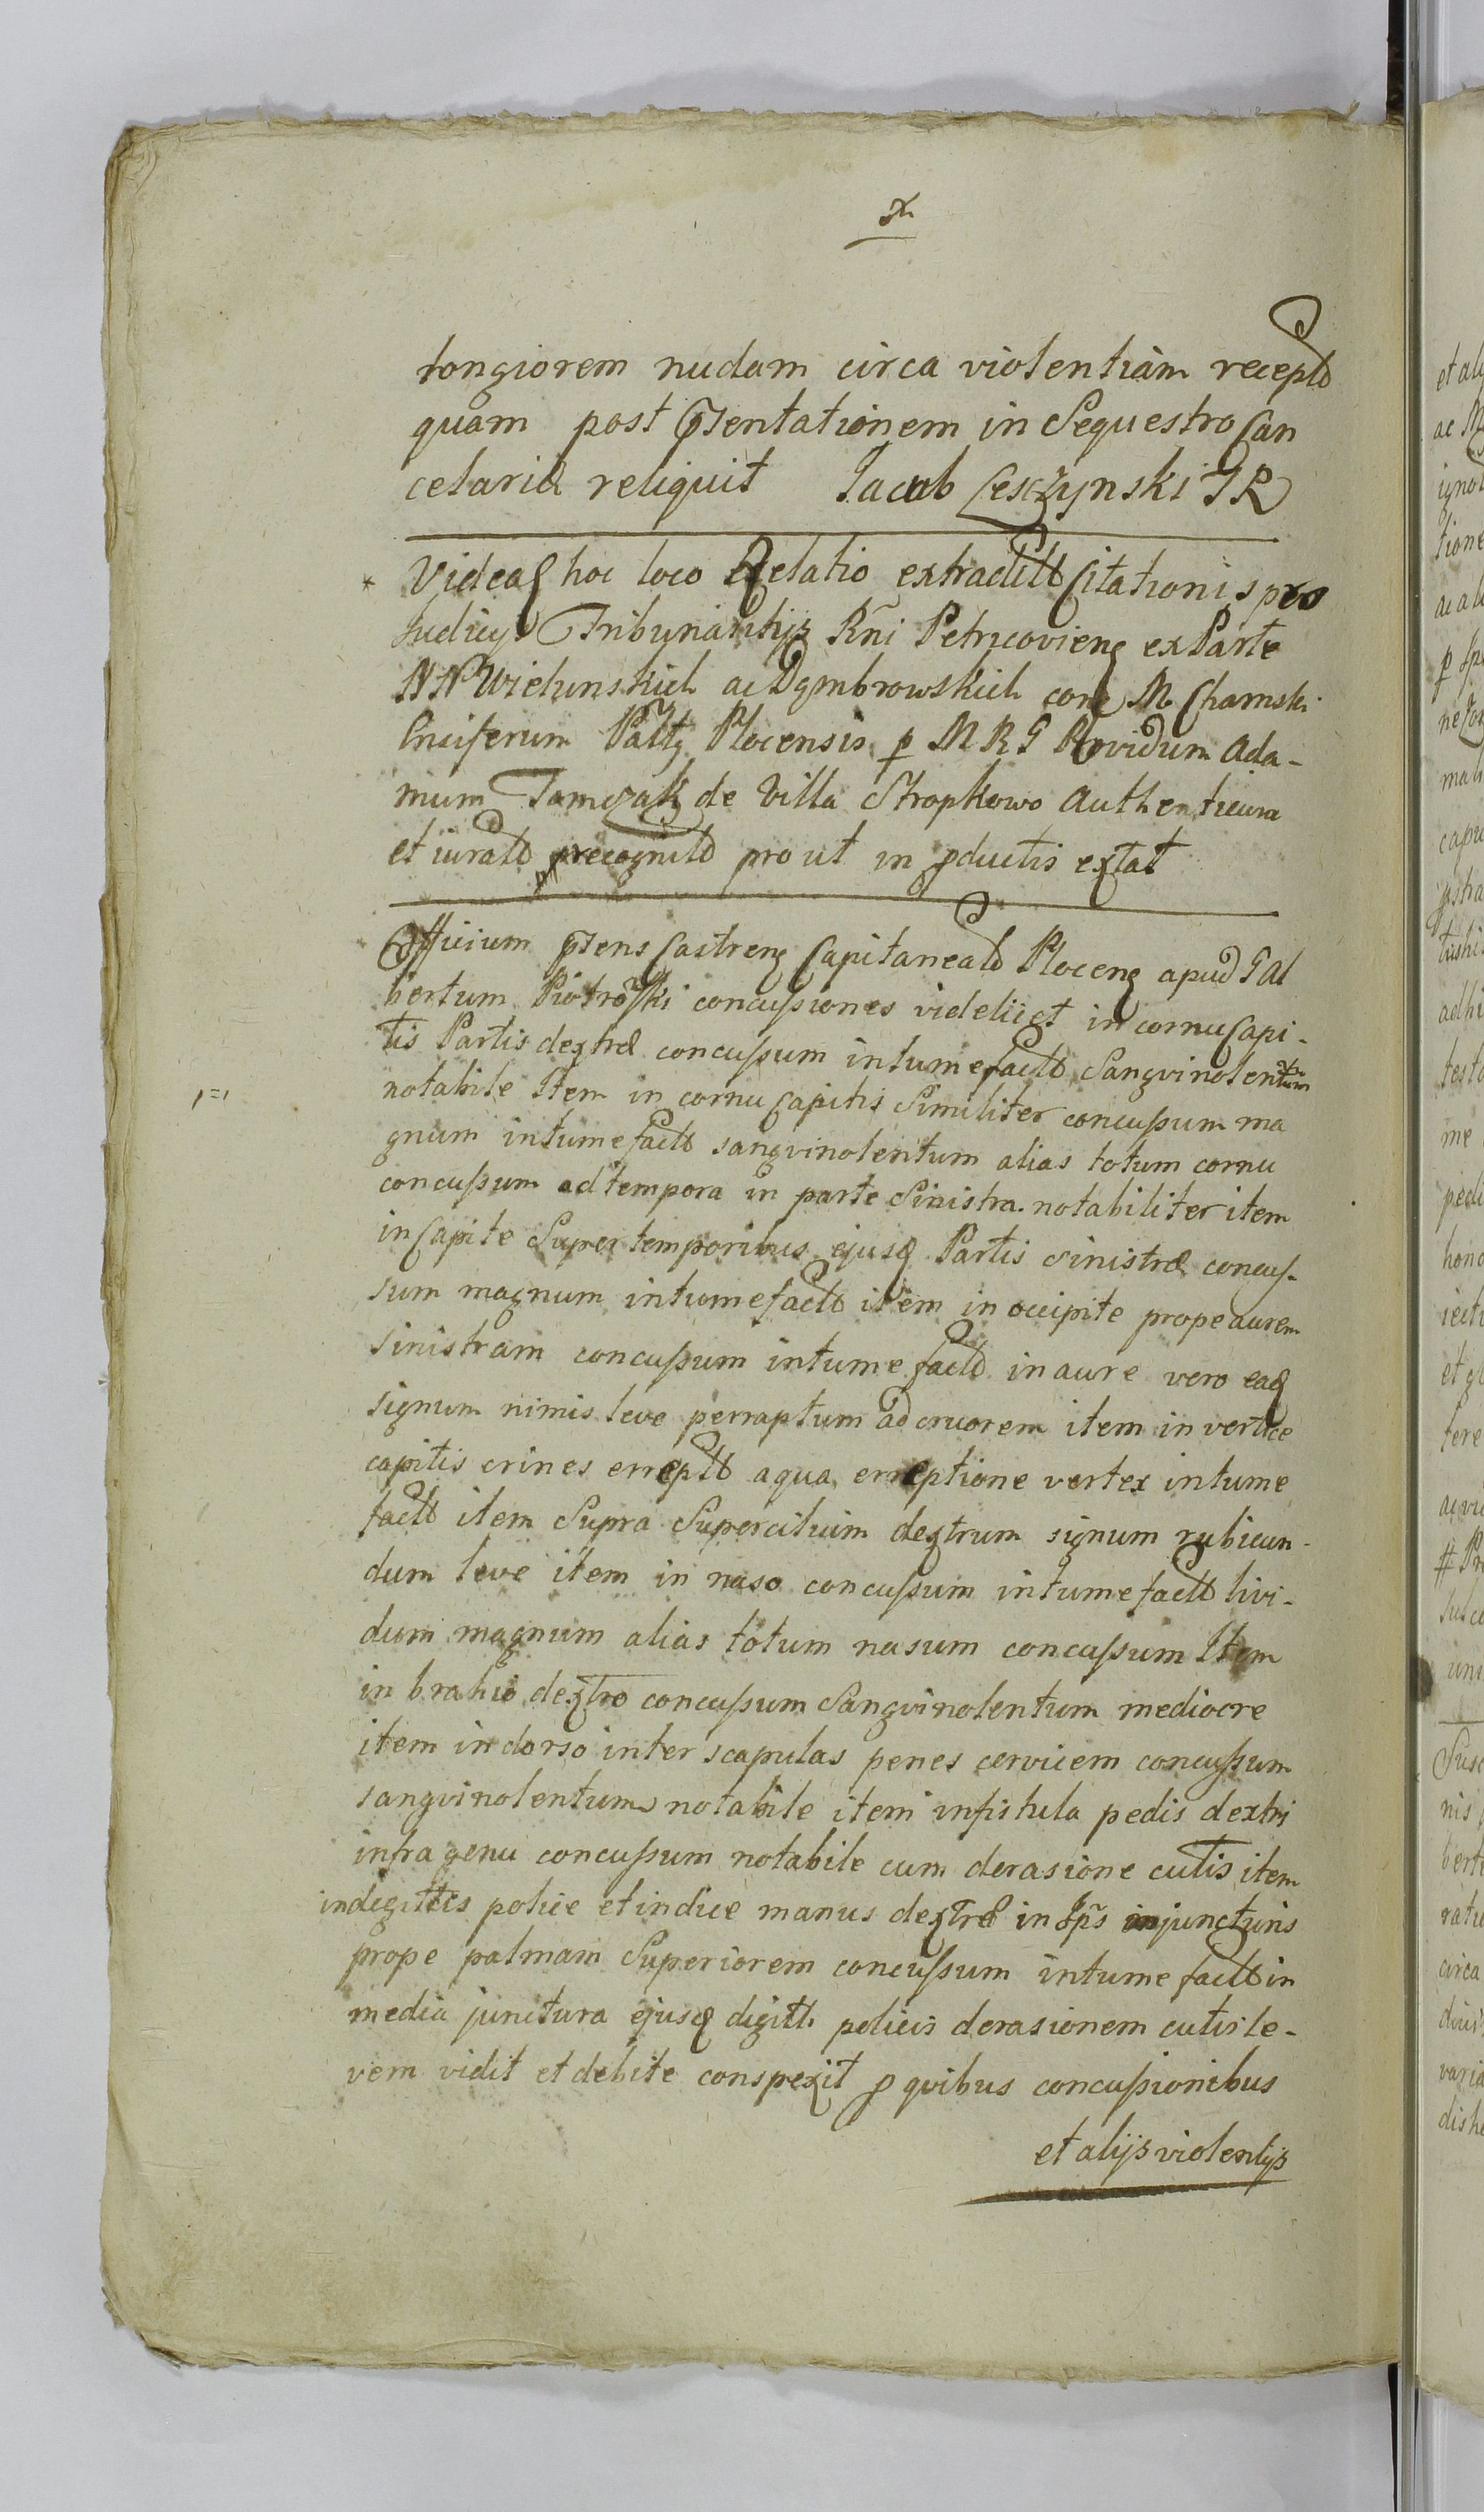 longiorem nudam circa violentiam recept
quam post pntentationem in Sequestro Can
celariæ reliquit Jacob Lesczynski JR
* Videaȩ hoc loco Relatio extradit Citationis pro
Judicijs Tribunalitijs Rñi Petricovienȩ ex Parte
NN Wielunskich ac Dąmbrowskich conȩ M Chamski
Ensiferum Paltȩ Plocensis p M R G Providum Ada-
mum Tamczak de Villa Stropkowo Authenticum
et iurat recognit pro ut in pductis extat
Officium pntens Castrenȩ Capitaneat Plocenȩ apud G Al
bertum Piotrosski concussiones videlicet in cornu Capi-
tis Partis dextræ concussum intumefact Sangvinolentum
notabile Item in cornu Capitis Similiter concussum ma
gnum intumefact sangvinolentum alias totum cornu
concussum ad tempora in parte Sinistra notabiliter item
in Capite Super temporibus ejusȩ Partis sinistræ concus-
sum magnum intumefact item in occipite prope aurem
sinistram concussum intumefact in aure vero eaȩ
signum nimis leve perraptum ad cruorem item in vertice
capitis crines errept a qua erreptione vertex intume
fact item Supra Supercilium dextrum signum rubicun-
dum leve item in naso concussum intumefact livi-
dum magnum alias totum nasum concussum Item
in brahio dextro concussum Sangvinolentum mediocre
item in dorso inter scapulas penes cervicem concussum
sangvinolentum notabile item in fistula pedis dextri
infra genu concussum notabile cum derasione cutis item
in digittis police et indice manus dextræ in Ips injuncturis
prope palmam Superiorem concussum intumefact in
media junctura ejusȩ digitti policis derasionem cutis le-
vem vidit et debite conspexit p quibus concussionibus
et alijs violentijs